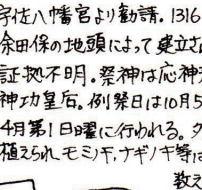 宇佐八幡宮より勧請。1316
余田保の地頭によって建立さ
証拠不明。祭神は応神天
神功皇后。例祭日は10月5
4月第1日曜に行われる。タ
植えられ、モミノキ、ナギノキ等は
数え